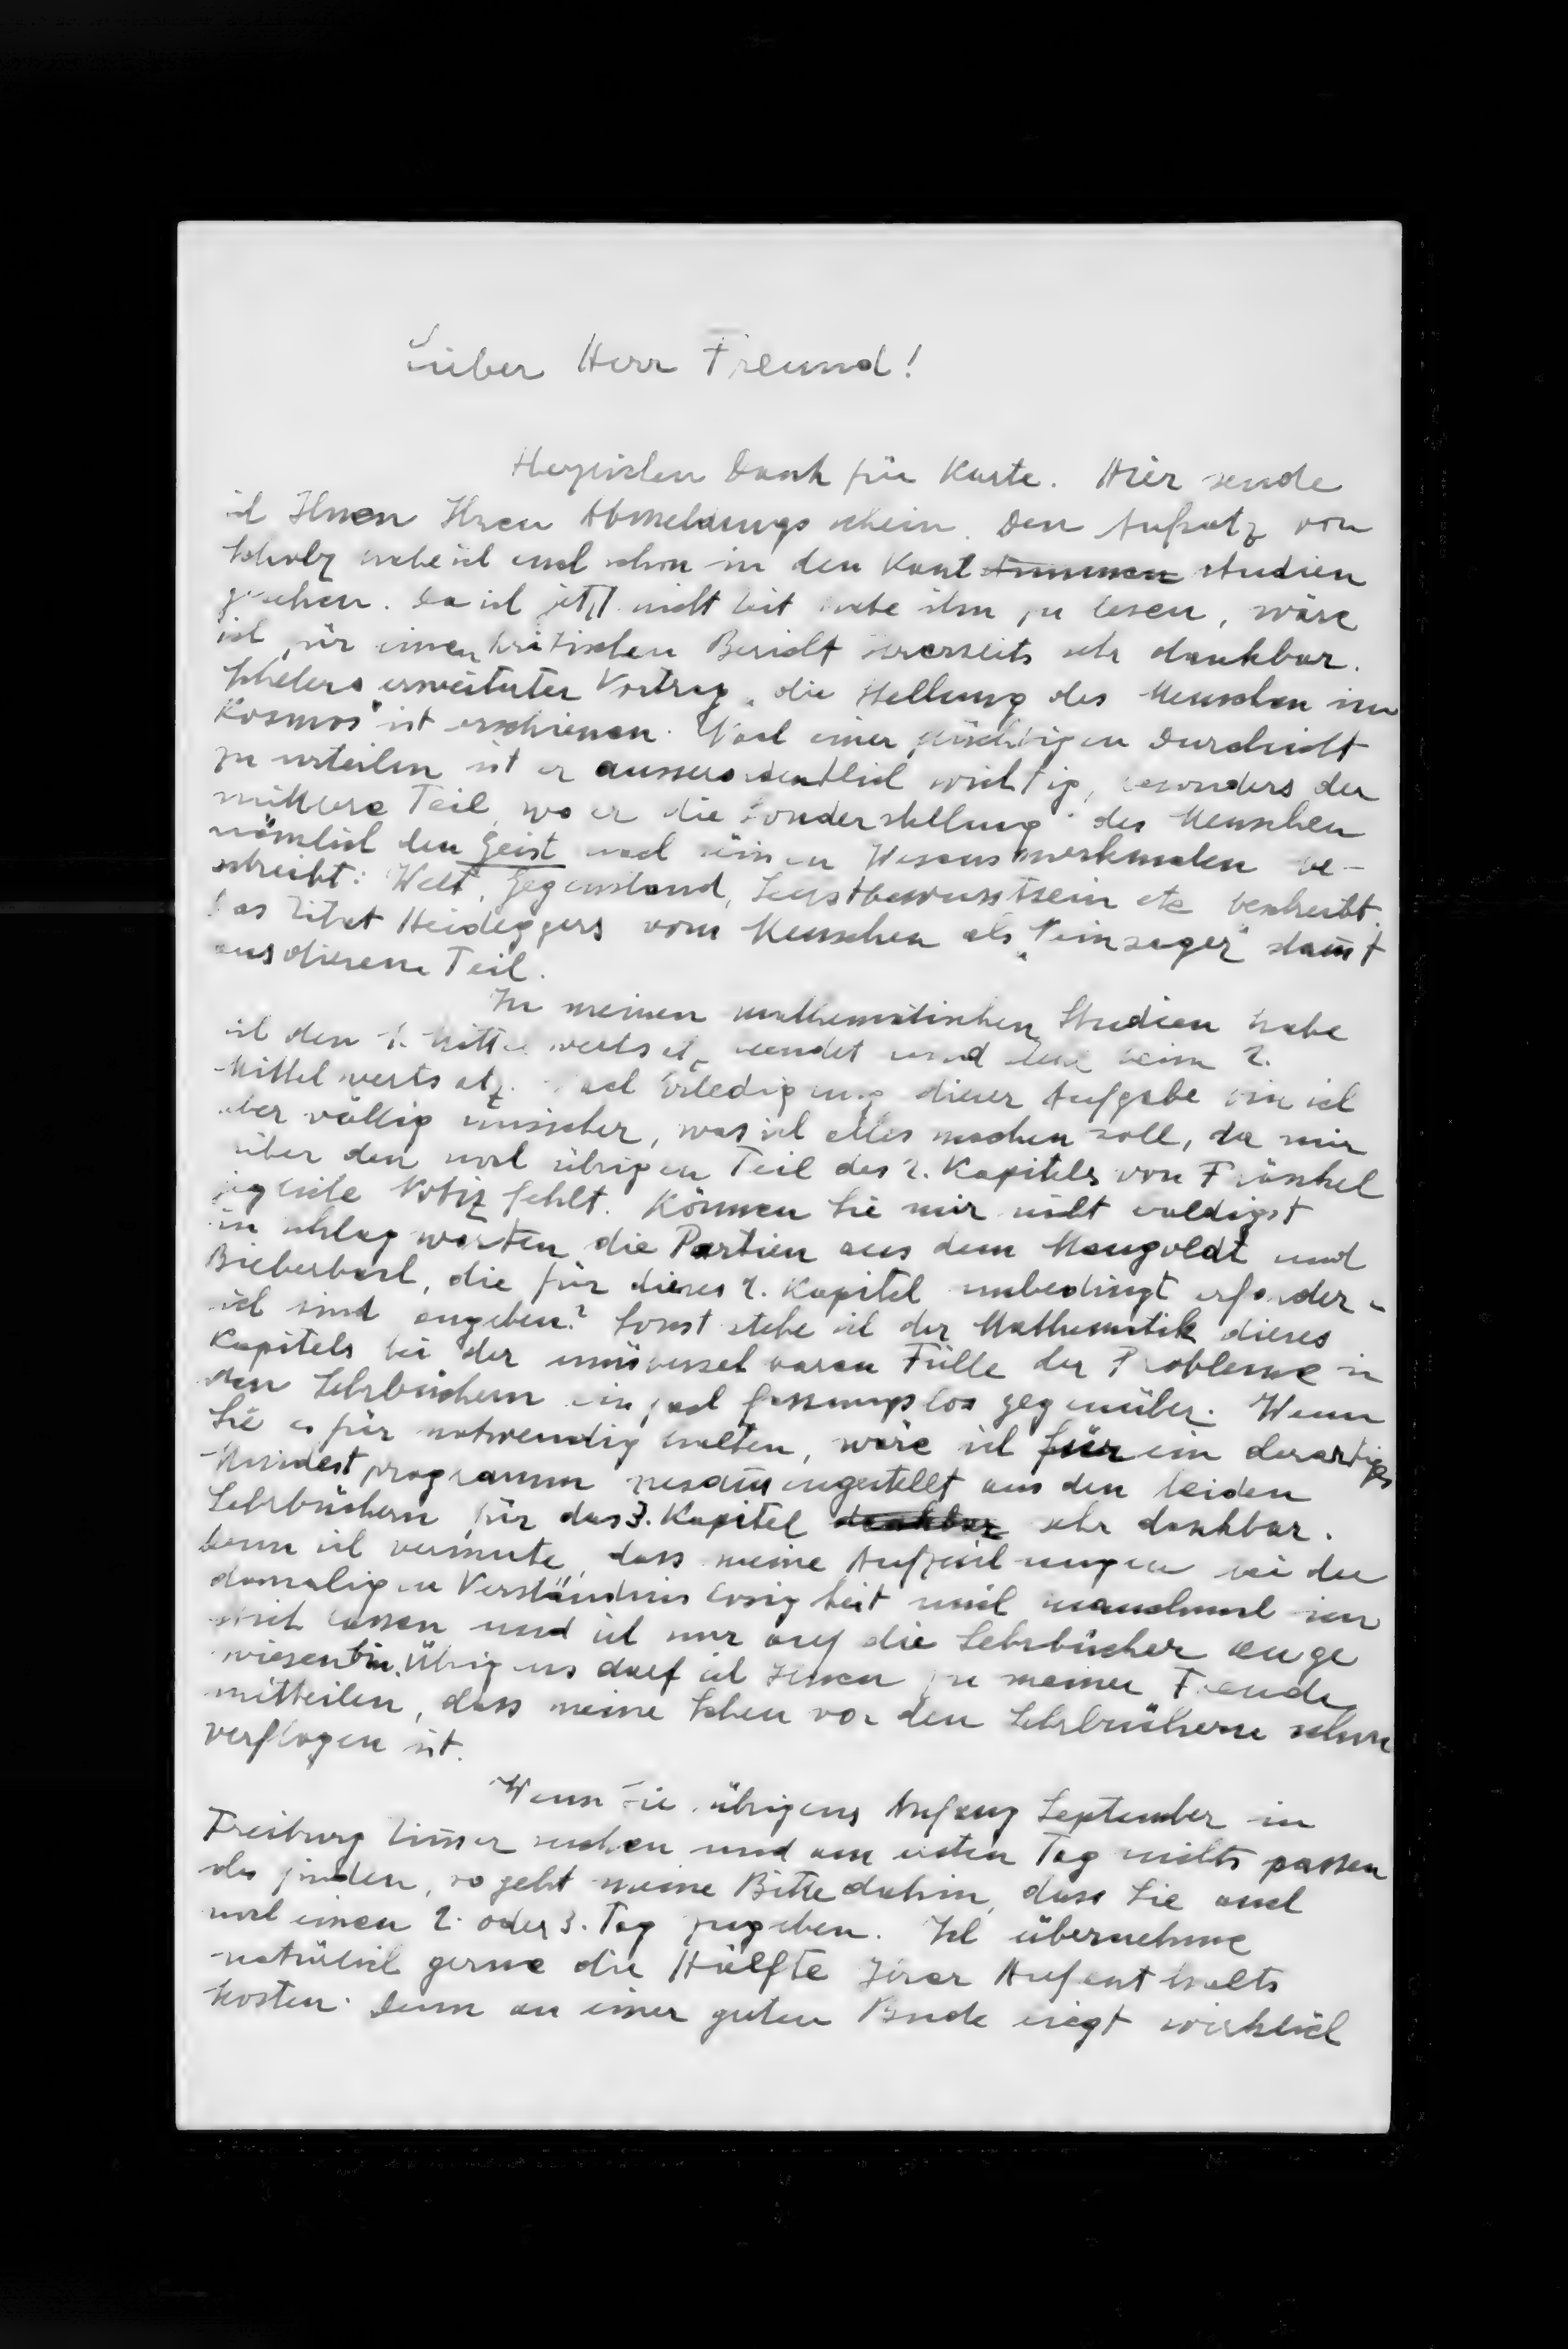 Lieber Herr Freund!
Herzlichen Dank für Karte. Hier sende
ich Ihnen Ihren Abmeldungsschein. Den Aufsatz von
Scholz habe ich auch schon in den Kant studien
gesehen. Da ich jetzt nicht Zeit habe ihn zu lesen, wäre
ich für einen kritischen Bericht Ihrerseits sehr dankbar.
Schelers erweiterter Vortrag „die Stellung des Menschen im
Kosmos" ist erschienen. Nach einer flüchtigen Durchsicht
zu urteilen ist er ausserordentlich wichtig, besonders der
mittlere Teil, wo er die „Sonderstellung" des Menschen
nämlich den Geist nach seinen Wesensmerkmalen be-
schreibt: Welt, Gegenstand, Selbstbewusstsein etc beschreibt.
Das Zitat Heideggers vom Menschen als „Neinsager" stam̅t
aus diesem Teil.
In meinen mathematischen Studien habe
ich den 1. Mittelwertsatz beendet und bin beim 2.
Mittelwertsatz. Nach Erledigung dieser Aufgabe bin ich
aber völlig unsicher, was ich alles machen soll, da mir
über den noch übrigen Teil des 2. Kapitels von Fränkel
jegliche Notiz fehlt. Können Sie mir nicht baldigst
in schlagworten die Partien aus dem Mangoldt und
Bieberbach, die für dieses 2. Kapitel unbedingt erforder-
lich sind angeben? Sonst stehe ich der Mathematik dieses
Kapitels bei der unübersehbaren Fülle der Probleme in
den Lehrbüchern einfach fassungslos gegenüber. Wenn
Sie es für notwendig halten, wäre ich für ein derartiges
Mindestprogramm zusam̅engestellt aus den beiden
Lehrbüchern für das 3. Kapitel dankbar sehr dankbar.
Denn ich vermute, dass meine Aufzeichnungen bei der
damaligen Verständnislosigkeit mich manchmal im
Stich lassen und ich nur auf die Lehrbücher ange
wiesen bin. Übrigens darf ich Ihnen zu meiner Freude
mitteilen, dass meine Scheu vor den Lehrbüchern schon
verflogen ist.
Wenn Sie übrigens Anfang September in
Freiburg Zim̅er suchen und am ersten Tag nichts passen
des finden, so geht meine Bitte dahin, dass Sie auch
noch einen 2. oder 3. Tag zugeben. Ich übernehme
natürlich gerne die Hälfte Ihrer Aufenthalts
kosten. Denn an einer guten Bude liegt wirklich